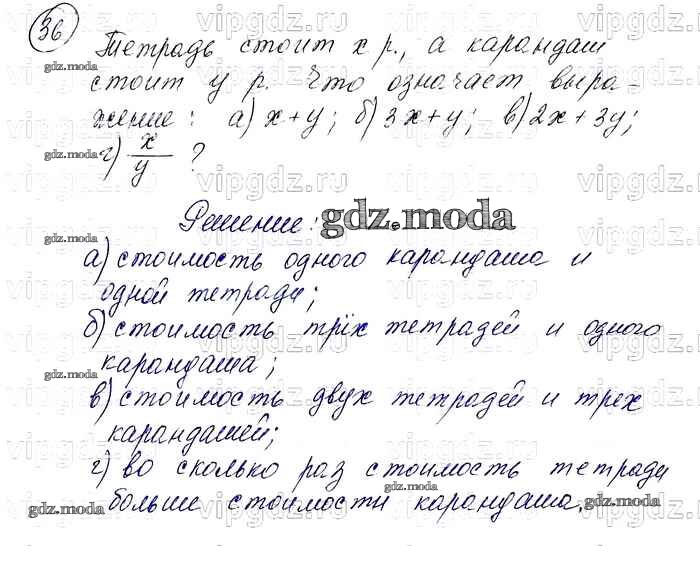 36
Тетрадь стоит x р., а карандаш
стоит y р. Что означает выра-
жение: а) x+y; б) 3x+y; в) 2x+3y;
г) x/y ?
Решение: gdz.moda
а) стоимость одного карандаша и
одной тетради;
б) стоимость трёх тетрадей и одного
карандаша;
в) стоимость двух тетрадей и трех
карандашей;
г) во сколько раз стоимость тетради
больше стоимости карандаша.
gdz.moda
vipgdz.ru